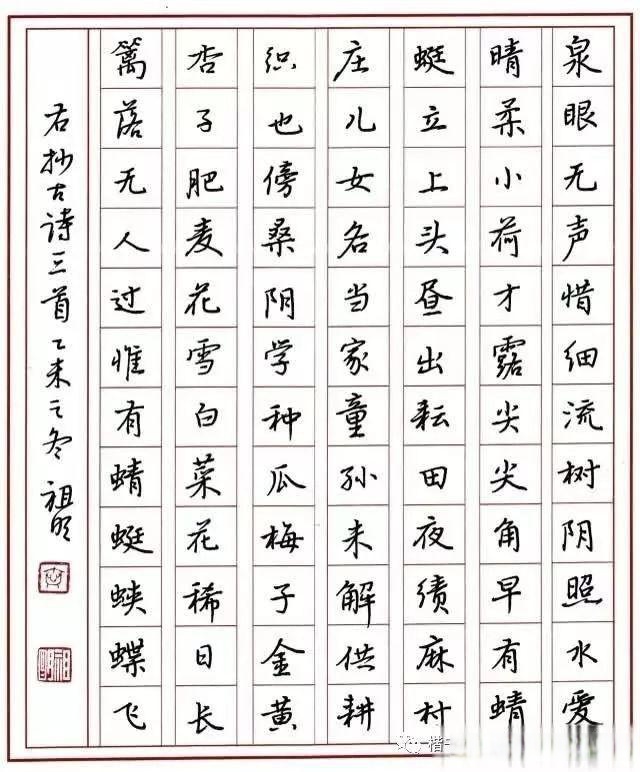 泉眼无声惜细流树阴照水爱
晴柔小荷才露尖尖角早有蜻
蜓立上头昼出耘田夜绩麻村
庄儿女各当家童孙未解供耕
织也傍桑阴学种瓜梅子金黄
杏子肥麦花雪白菜花稀日长
篱落无人过惟有蜻蜓蛱蝶飞
右抄古诗三首乙未之冬祖明
楷